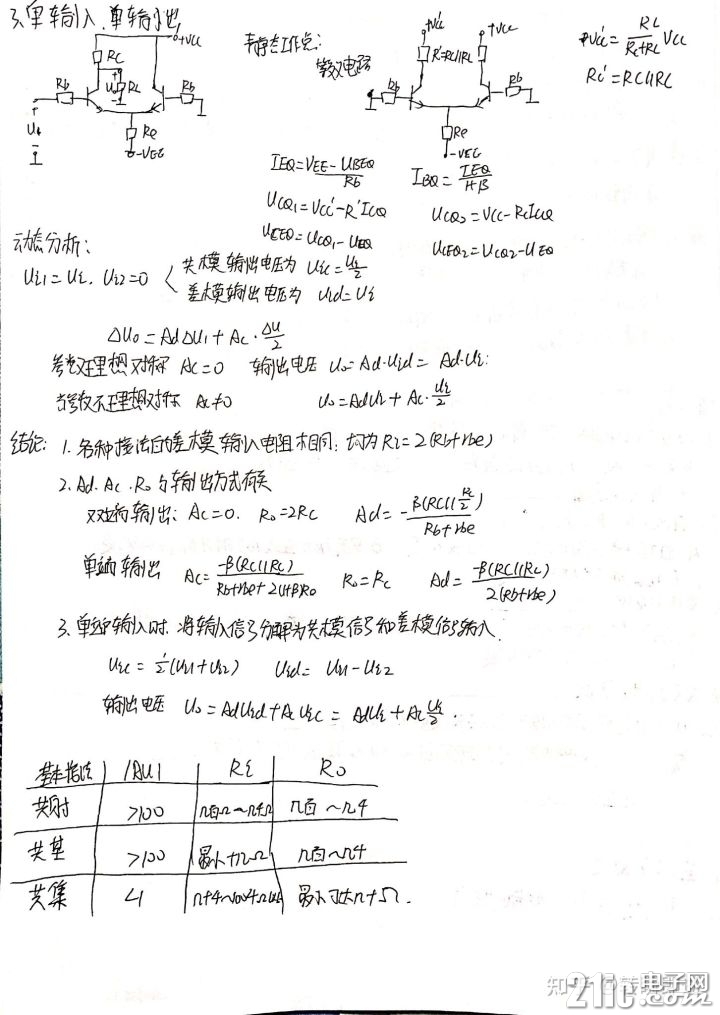 3、单输入、单输出
+VCC
RC
Rb
RL
Rb
Re
-VEE
静态工作点：
等效电路
+VCC'
+VCC
R'=RC//RL
Rb
Re
-VEE
VCC' = RL/(RC+RL) VCC
RC' = RC//RL
IEQ = (VEE-UBEQ)/Rb
IBQ = IEQ/(1+β)
UCQ1 = VCC'-R'ICQ
UCQ2 = VCC-RCICQ
UCEQ = UCQ1-UEQ
UCEQ2 = UCQ2-UEQ
动态分析：
Ui1=Ui, Ui2=0
共模输出电压为 Uic=Ui/2
差模输出电压为 Uid=Ui
ΔUo=AdΔU1+Ac·ΔU/2
参数理想对称 Ac=0 输出电压 Uo=Ad·Uid=Ad·Ui
参数不理想对称 Ac≠0 Uo=AdUi+Ac·Ui/2
结论：1. 各种接法的差模输入电阻相同，均为Ri=2(Rb+rbe)
2. Ad、Ac、Ro与输出方式有关
双端输出：Ac=0. Ro=2RC Ad=-β(RC//RL/2)/(Rb+rbe)
单端输出 Ac=-β(RC//RL)/(Rb+rbe+2(1+β)Ro) Ro=RC Ad=-β(RC//RL)/2(Rb+rbe)
3. 单端输入时，将输入信号分解为共模信号和差模信号输入.
Uic=1/2(Ui1+Ui2) Uid=Ui1-Ui2
输出电压 Uo=AdUid+AcUic=AdUi+AcUi/2.
基本接法 |Au| Ri Ro
共射 >100
共基 >100
共集 <1
知乎
21ic.电子网